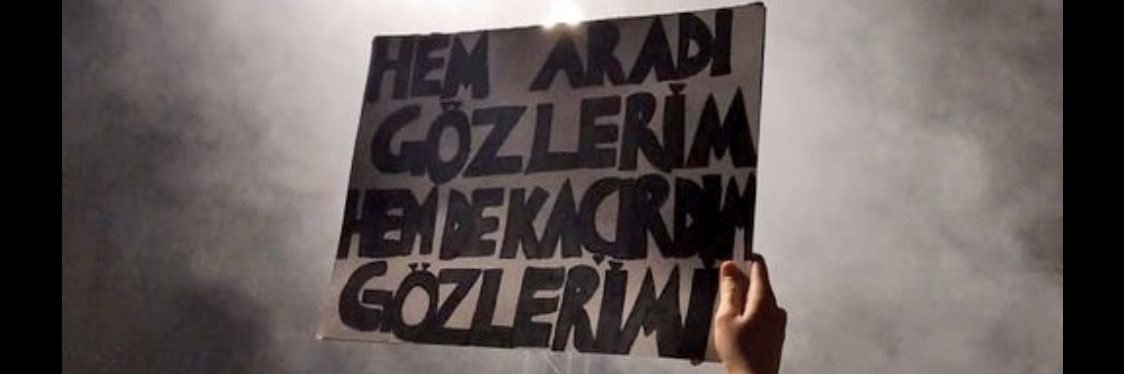 HEM ARADI
GÖZLERİM
HEM DE KAÇIRDIM
GÖZLERİMİ